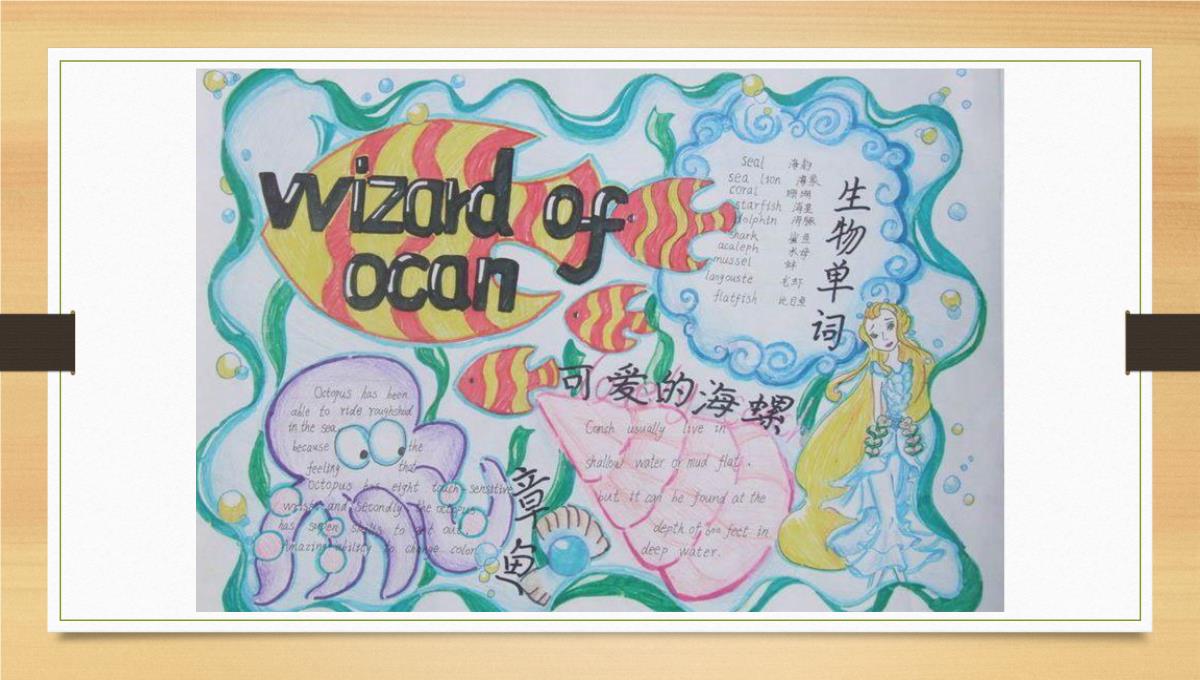 wizard of
ocan
seal 海豹
sea lion 海象
coral 珊瑚
starfish 海星
dolphin 海豚
shark 鲨鱼
acaleph 水母
mussel 蚌
langouste 毛虾
flatfish 比目鱼
生物单词
可爱的海螺
Conch usually live in
shallow water or mud flat.
but it can be found at the
depth of 600 feet in
deep water.
Octopus has been
able to ride roughshod
in the sea
because the
feeling that
octopus has eight touch-sensitive
and secondly the octopus
has super skills to get out
Amazing ability to change color
章鱼